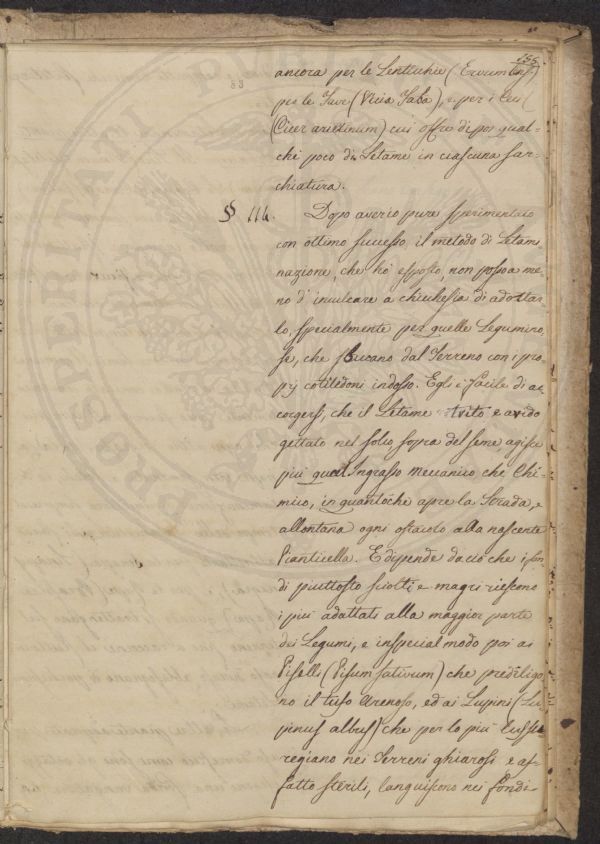 155.
ancora per le Lenticchie (Ervum Lens)
per le Fave (Vicia Faba), e per i Ceci
(Cicer arietinum) cui offre dipoi qual-
ché poco di Letame in ciascuna sar-
chiatura.
§§ 114. Dopo averlo pure sperimentato
con ottimo successo, il metodo di Letami
nazione, che hò esposto, non posso a me
no d'inculcare a chichesia di adottar
lo, specialmente per quelle Legumino-
se, che sbucano dal Terreno con i pro
pj cotiledoni indosso. Egli è facile di ac
corgersi, che il Letame trito e arido
gettato nel solco sopra del seme, agisce
più qual Ingrasso Meccanico che Chi-
mico, in quantoche apre la Strada, e
allontana ogni ostacolo alla nascente
Pianticella. E dipende da ciò che i fon
di piuttosto sciolti e magri riescono
i più adattati alla maggior parte
dei Legumi, e inspecial modo poi ai
Piselli (Pisum sativum) che prediligo
no il tufo arenoso, ed ai Lupini (Lu
pinus albus) che per lo più lussu-
regiano nei Terreni ghiarosi e af-
fatto sterili, languiscono nei fondi
PROSPERITATI PUBL